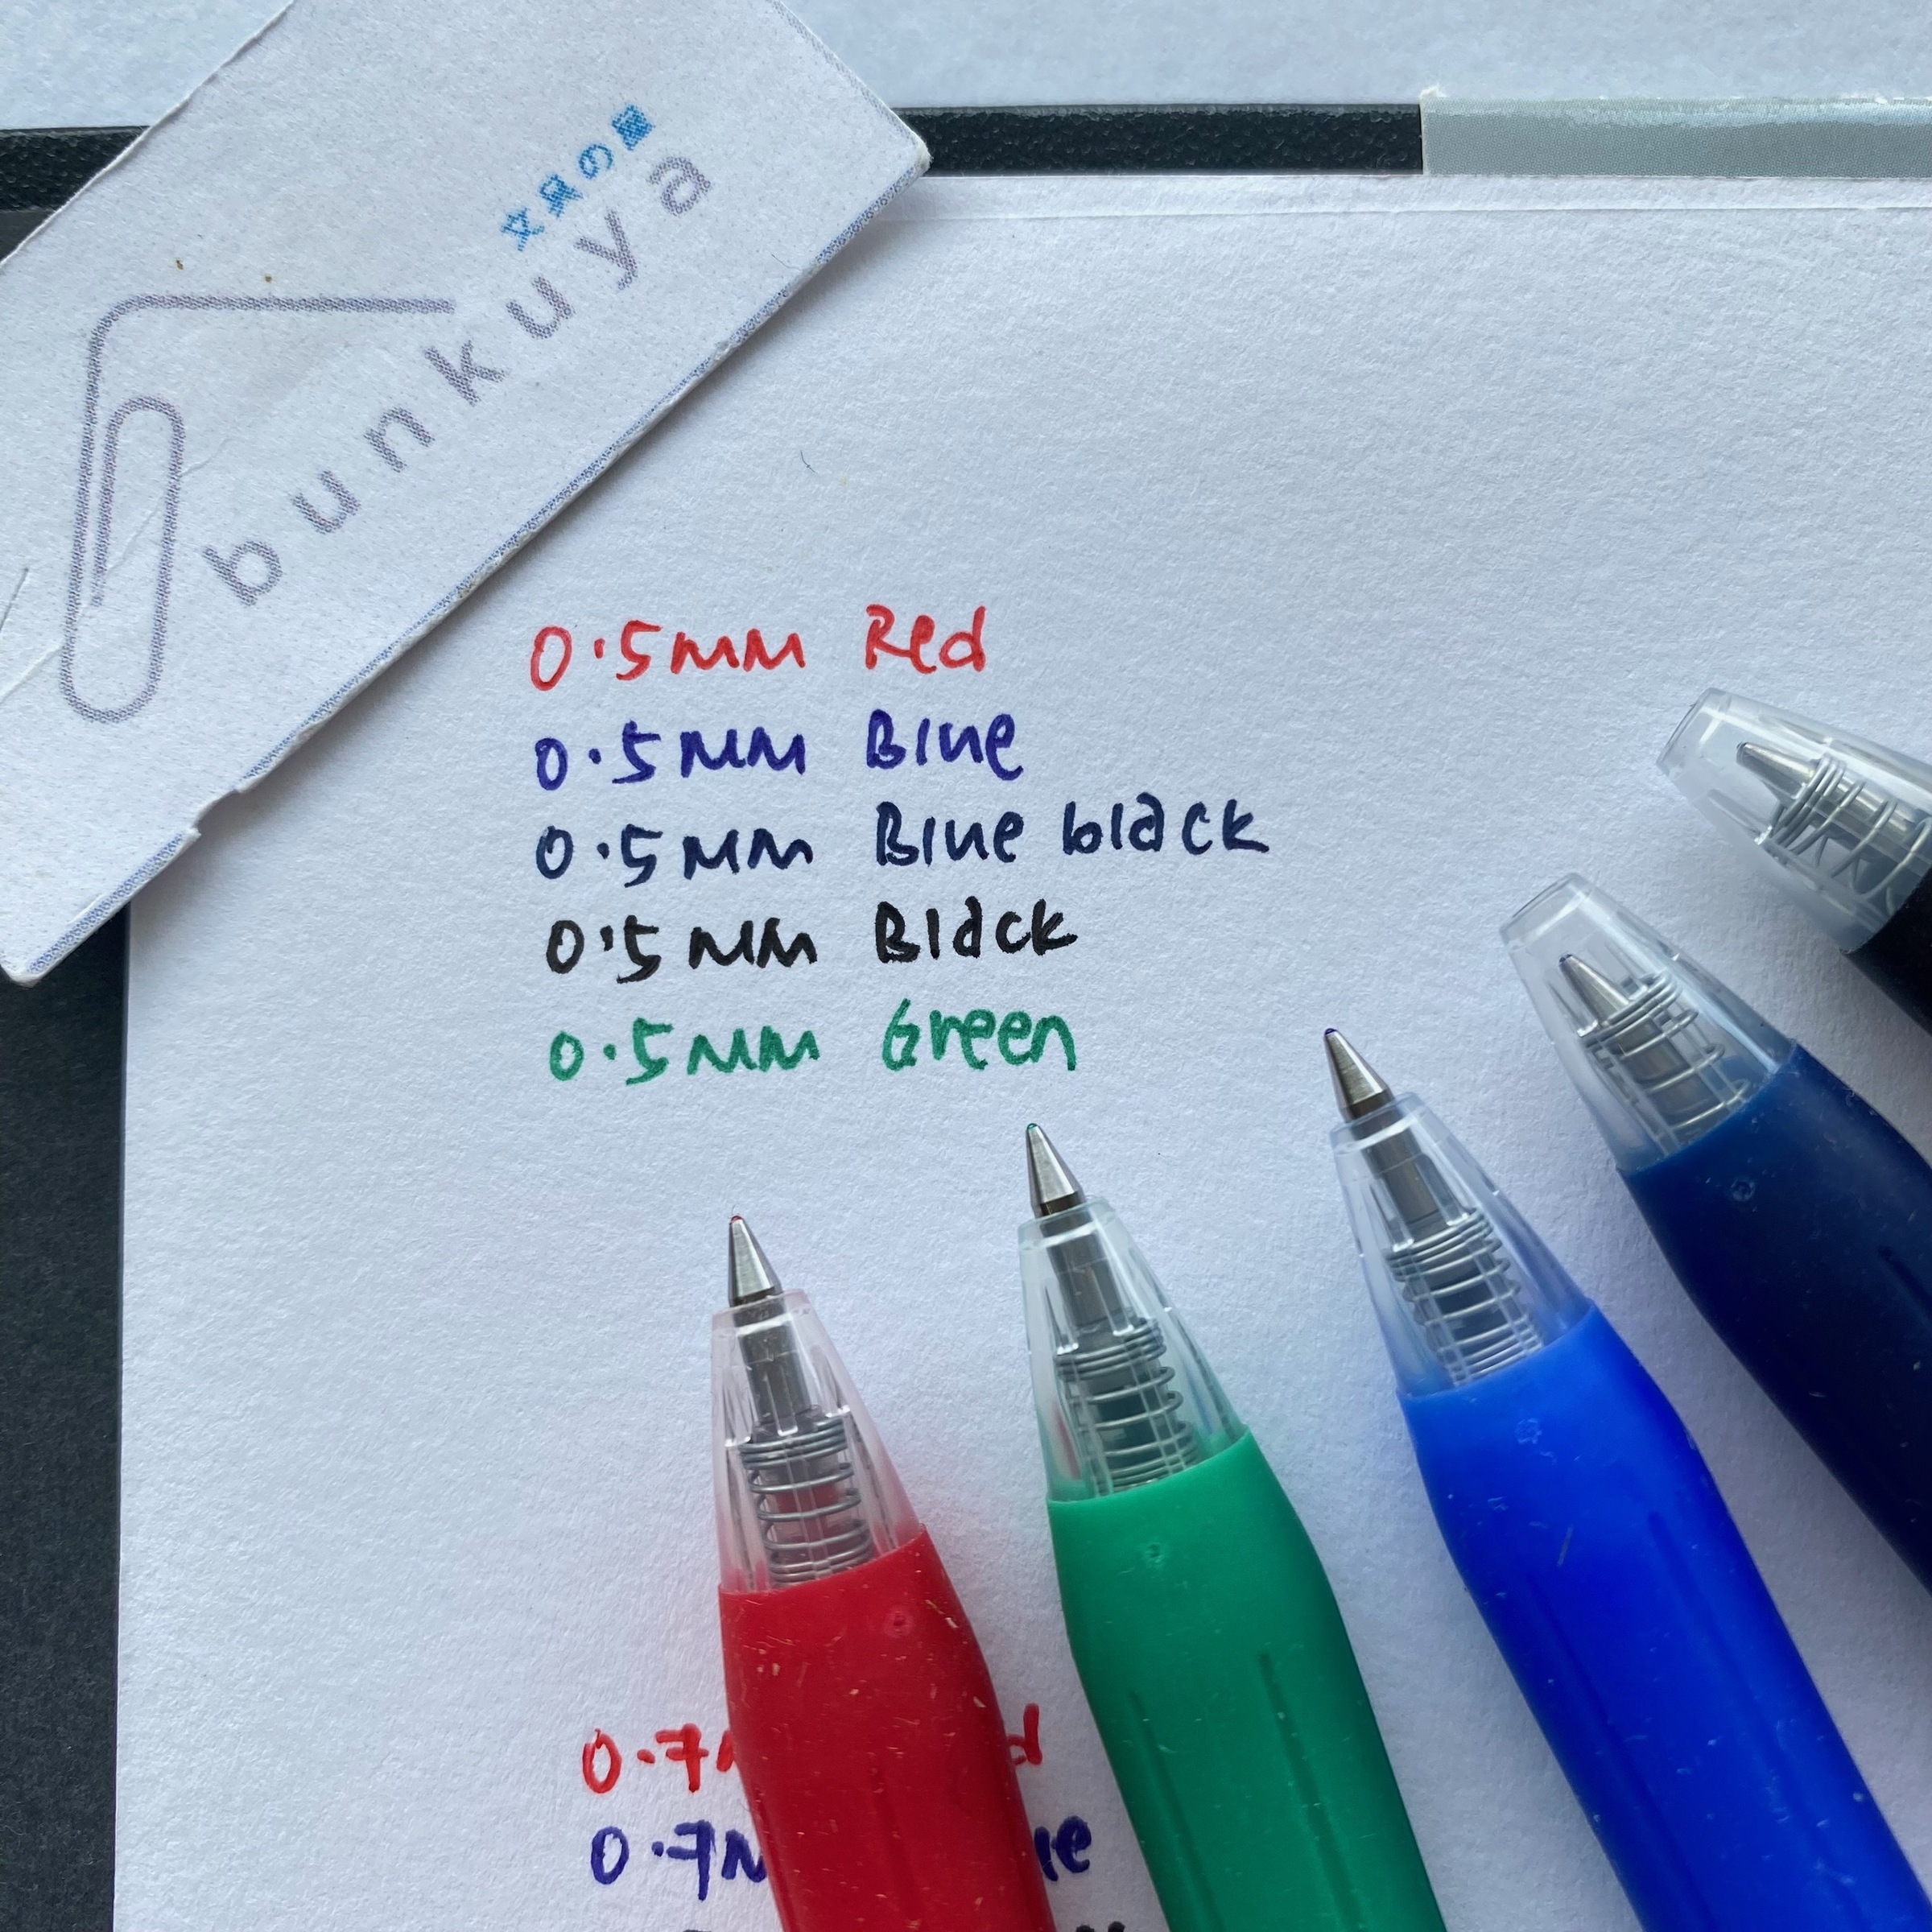 文具の屋
bunkuya
0.5MM Red
0.5MM Blue
0.5MM Blue black
0.5MM Black
0.5MM Green
0.7
0.7